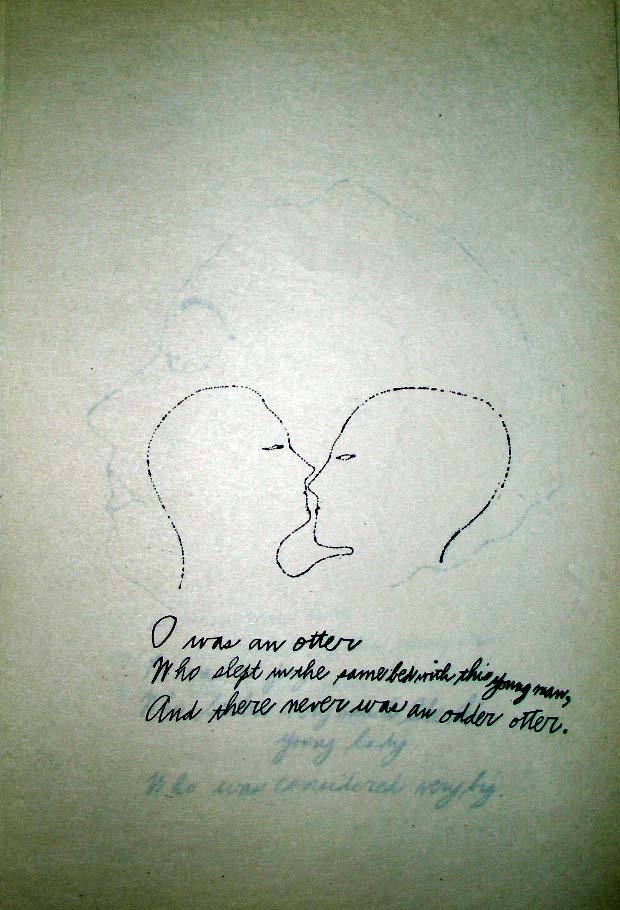 O was an otter
Who slept in the same bed with this young man,
And there never was an odder otter.
young lady
Who was considered very big.